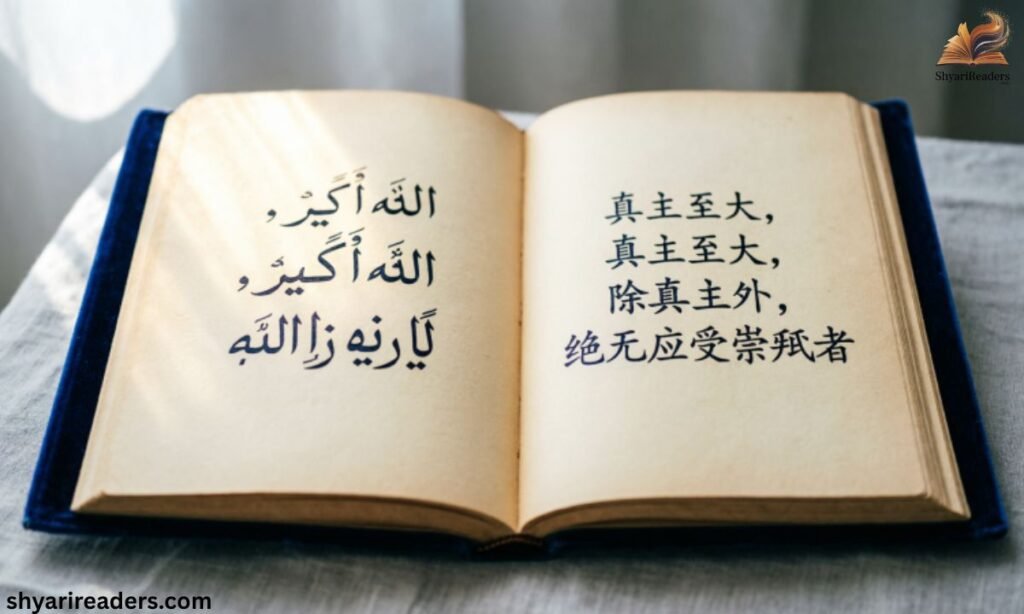 ShyariReaders
الله أكبر,
الله أكبر,
真主至大,
真主至大,
除真主外,
绝无应受崇者
shyarireaders.com